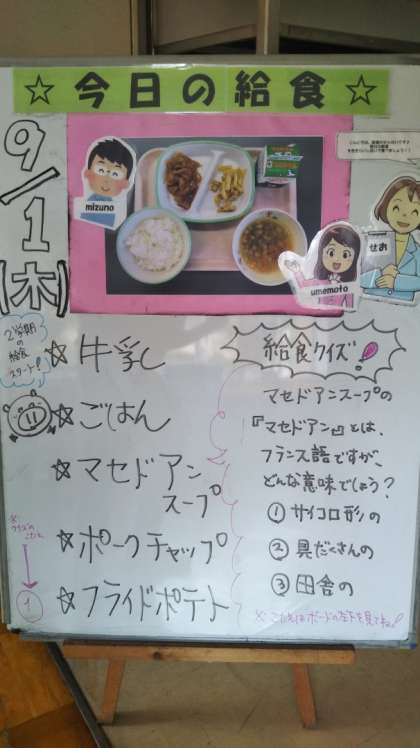 ☆今日の給食☆
9/1(木)
mizuno
umemoto
せお
2学期の
給食
スタート!
☆牛乳
☆ごはん
☆マセドアン
スープ
☆ポークチャップ
☆フライドポテト
給食クイズ!
マセドアンスープの
『マセドアン』とは、
フランス語ですが、
どんな意味でしょう?
①サイコロ形の
②具だくさんの
③田舎の
※こたえはボードの左下を見てね♪
※
クイズの
こたえ
↓
①